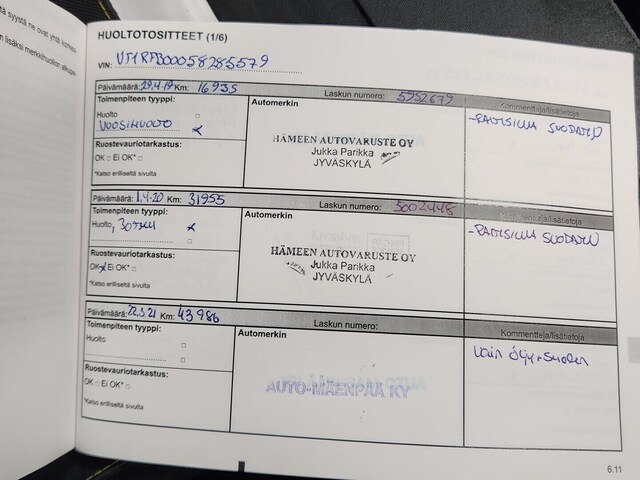 tä syystä ne ovat yhtä korkea
n lisäksi merkkihuollon alkupe
HUOLTOTOSITTEET (1/6)
VIN:
Päivämäärä: 29.4.19 Km: 16935 Laskun numero: 5952679
Toimenpiteen tyyppi: Automerkin Kommentteja/lisätietoja
Huolto □
VUOSIHUOLTO x
Ruostevauriotarkastus:
OK □ Ei OK* □
*Katso erilliseltä sivulta
HÄMEEN AUTOVARUSTE OY
Jukka Parikka
JYVÄSKYLÄ
-RAITISILMA SUODATIN
Päivämäärä: 1.4.20 Km: 31955 Laskun numero: 5002448
Toimenpiteen tyyppi: Automerkin
Huolto, 30 TKM x
□
Ruostevauriotarkastus:
OK x Ei OK* □
*Katso erilliseltä sivulta
HÄMEEN AUTOVARUSTE OY
Jukka Parikka
JYVÄSKYLÄ
-RAITISILMA SUODATIN
Päivämäärä: 22.3.21 Km: 43986 Laskun numero:
Toimenpiteen tyyppi: Automerkin Kommentteja/lisätietoja
Huolto □
□
Ruostevauriotarkastus:
OK □ Ei OK* □
*Katso erilliseltä sivulta
AUTO-MÄENPÄÄ KY
Vain Öljy + Suodatin
6.11